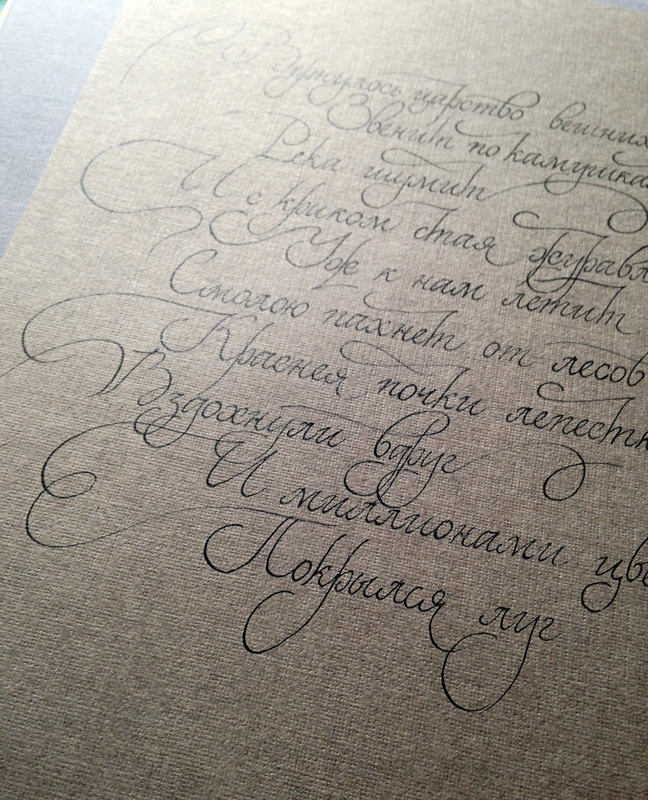 Вернулось царство вешних
Звенит по камушка
Река шумит
И с криком стая журавл
Уже к нам летит
Смолою пахнет от лесов
Краснея почки лепестк
Вздохнули вдруг
И миллионами цве
Покрылся луг